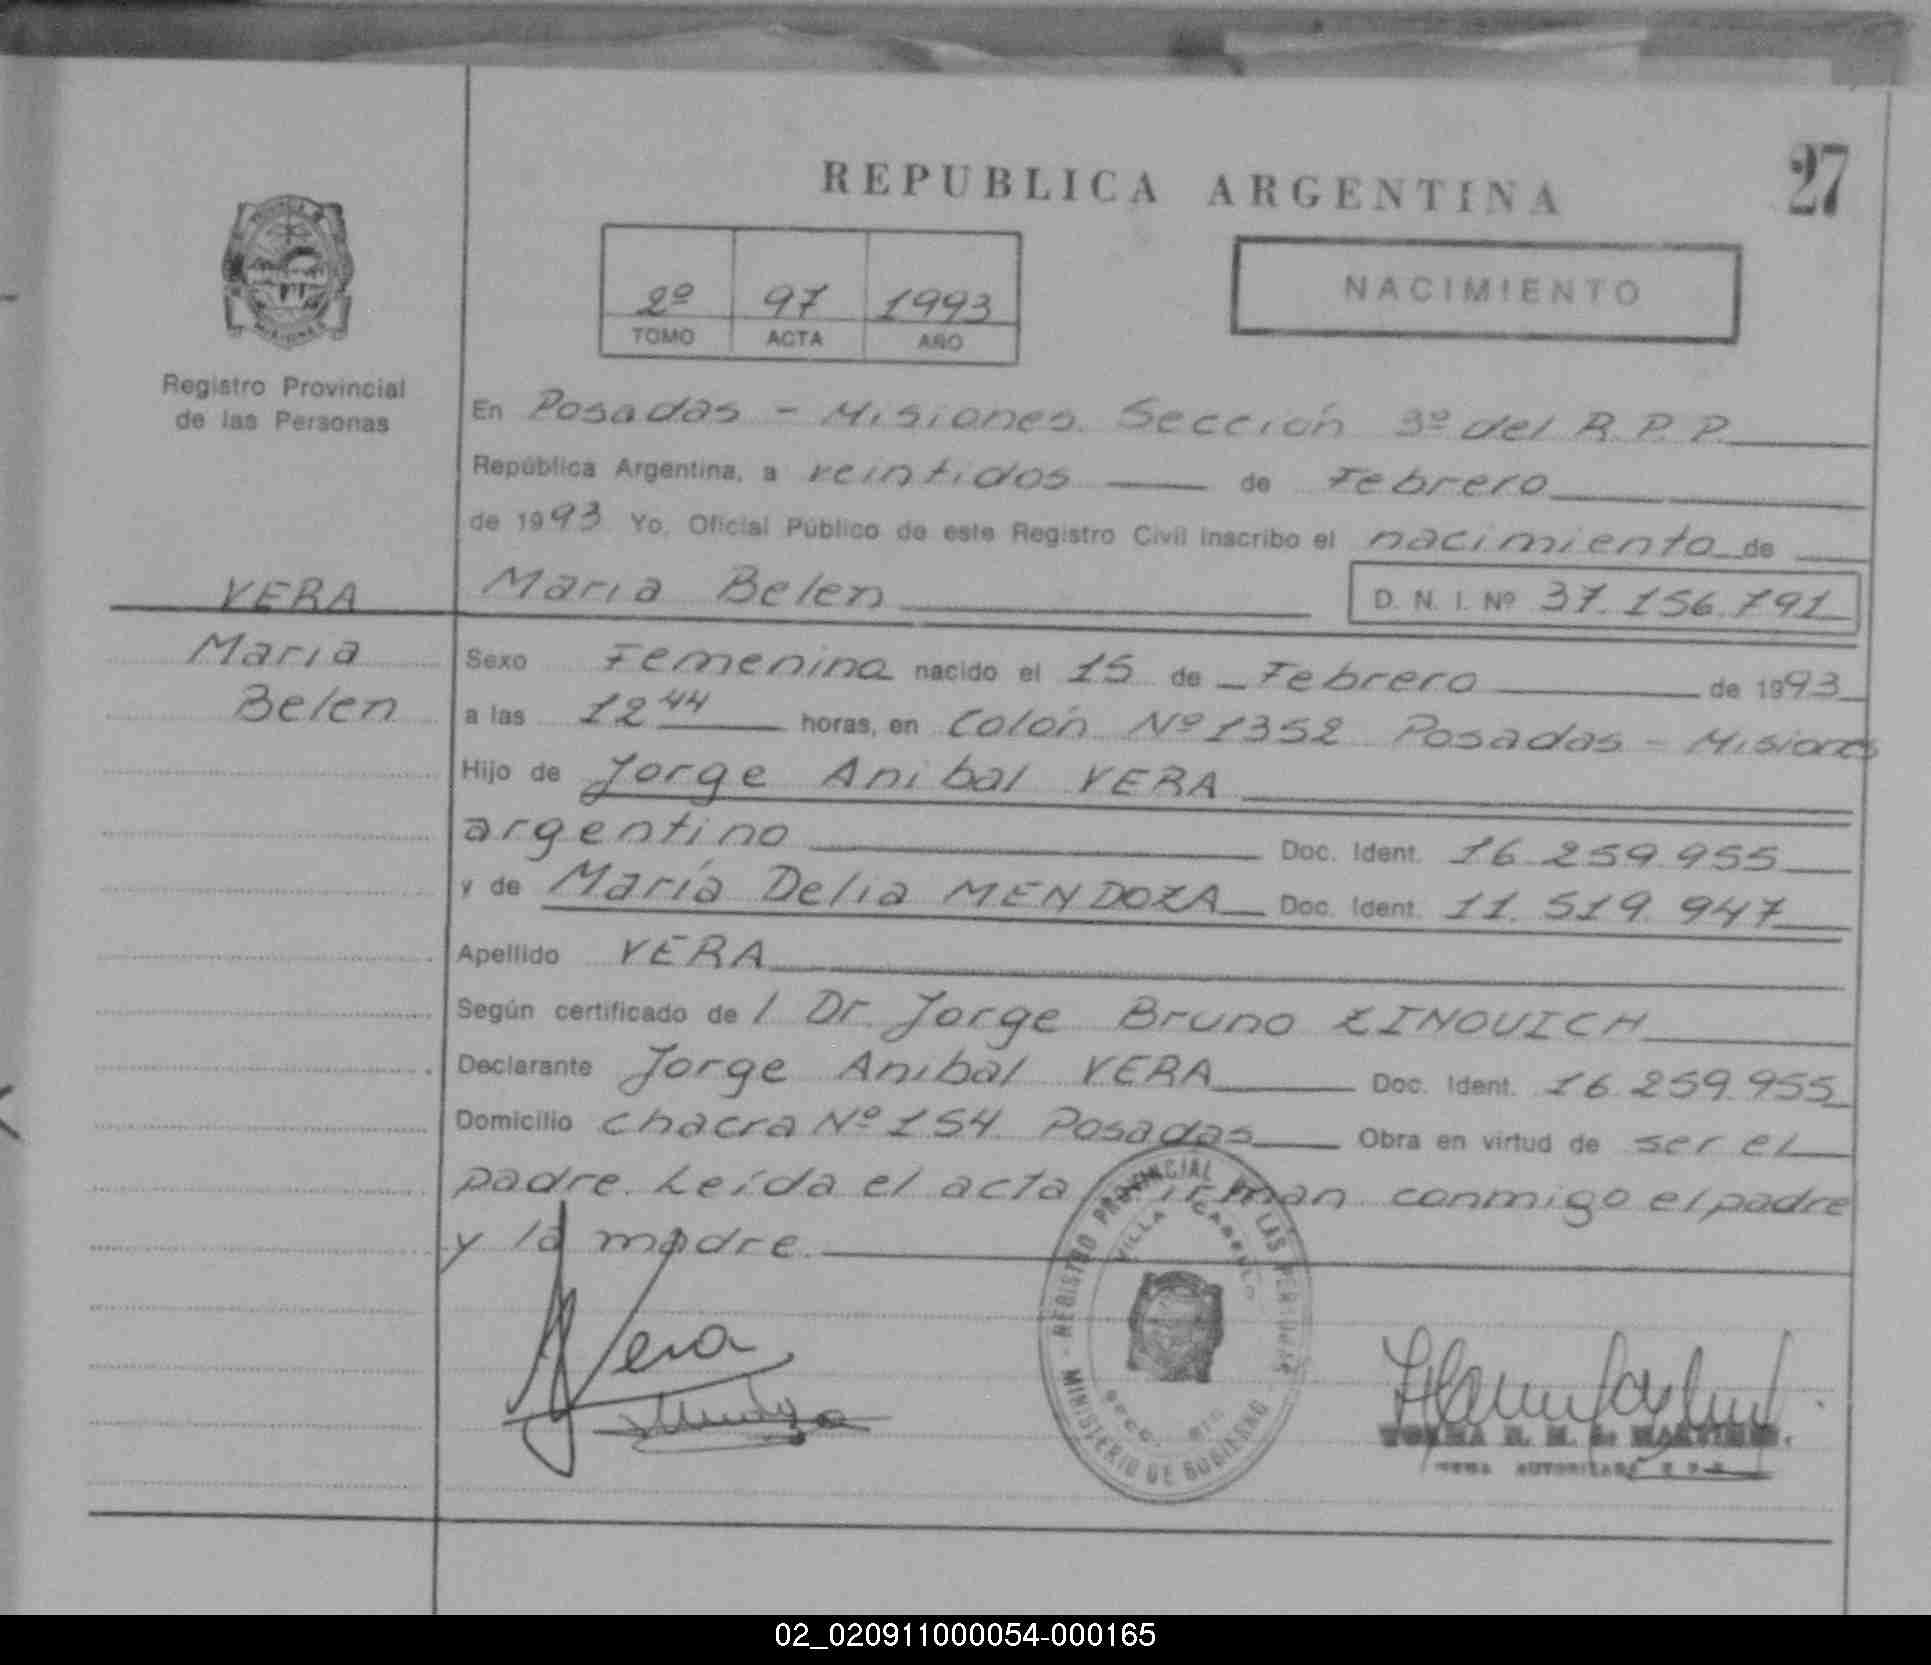 27
REPUBLICA ARGENTINA
2º 97 1993
TOMO ACTA AÑO
NACIMIENTO
Registro Provincial
de las Personas
En Posadas - Misiones. Sección 3º del R.P.P.
República Argentina, a veintidos de Febrero
de 1993 Yo, Oficial Público de este Registro Civil inscribo el nacimiento de
VERA
Maria
Belen
Maria Belen D. N. I. Nº 37.156.791
Sexo Femenina nacido el 15 de Febrero de 1993
a las 12 44 horas, en Colón Nº 1352 Posadas - Misiones
Hijo de Jorge Anibal VERA
argentino Doc. Ident. 16.259.955
y de María Delia MENDOZA Doc. Ident. 11.519.947
Apellido VERA
Según certificado de l Dr. Jorge Bruno ZINOVICH
Declarante Jorge Anibal VERA Doc. Ident. 16.259.955
Domicilio chacra Nº 154 Posadas Obra en virtud de ser el
padre. Leída el acta firman conmigo el padre
y la madre.
REGISTRO PROVINCIAL DE LAS PERSONAS
VILLA CABELLO
MINISTERIO DE GOBIERNO
Vera
02_020911000054-000165